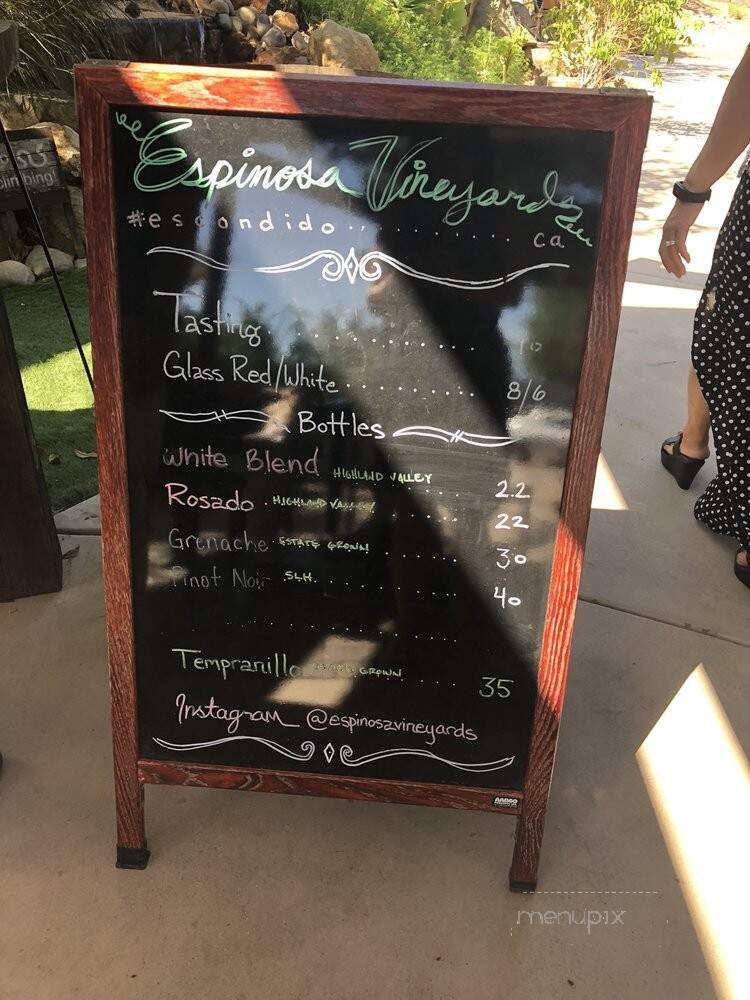 Espinosa Vineyards
#escondido ca
Tasting 10
Glass Red/White 8/6
Bottles
White Blend HIGHLAND VALLEY 22
Rosado HIGHLAND VALLEY 22
Grenache ESTATE GROWN! 30
Pinot Noir SLH 40
Tempranillo GROWN 35
Instagram @espinosavineyards
menupix